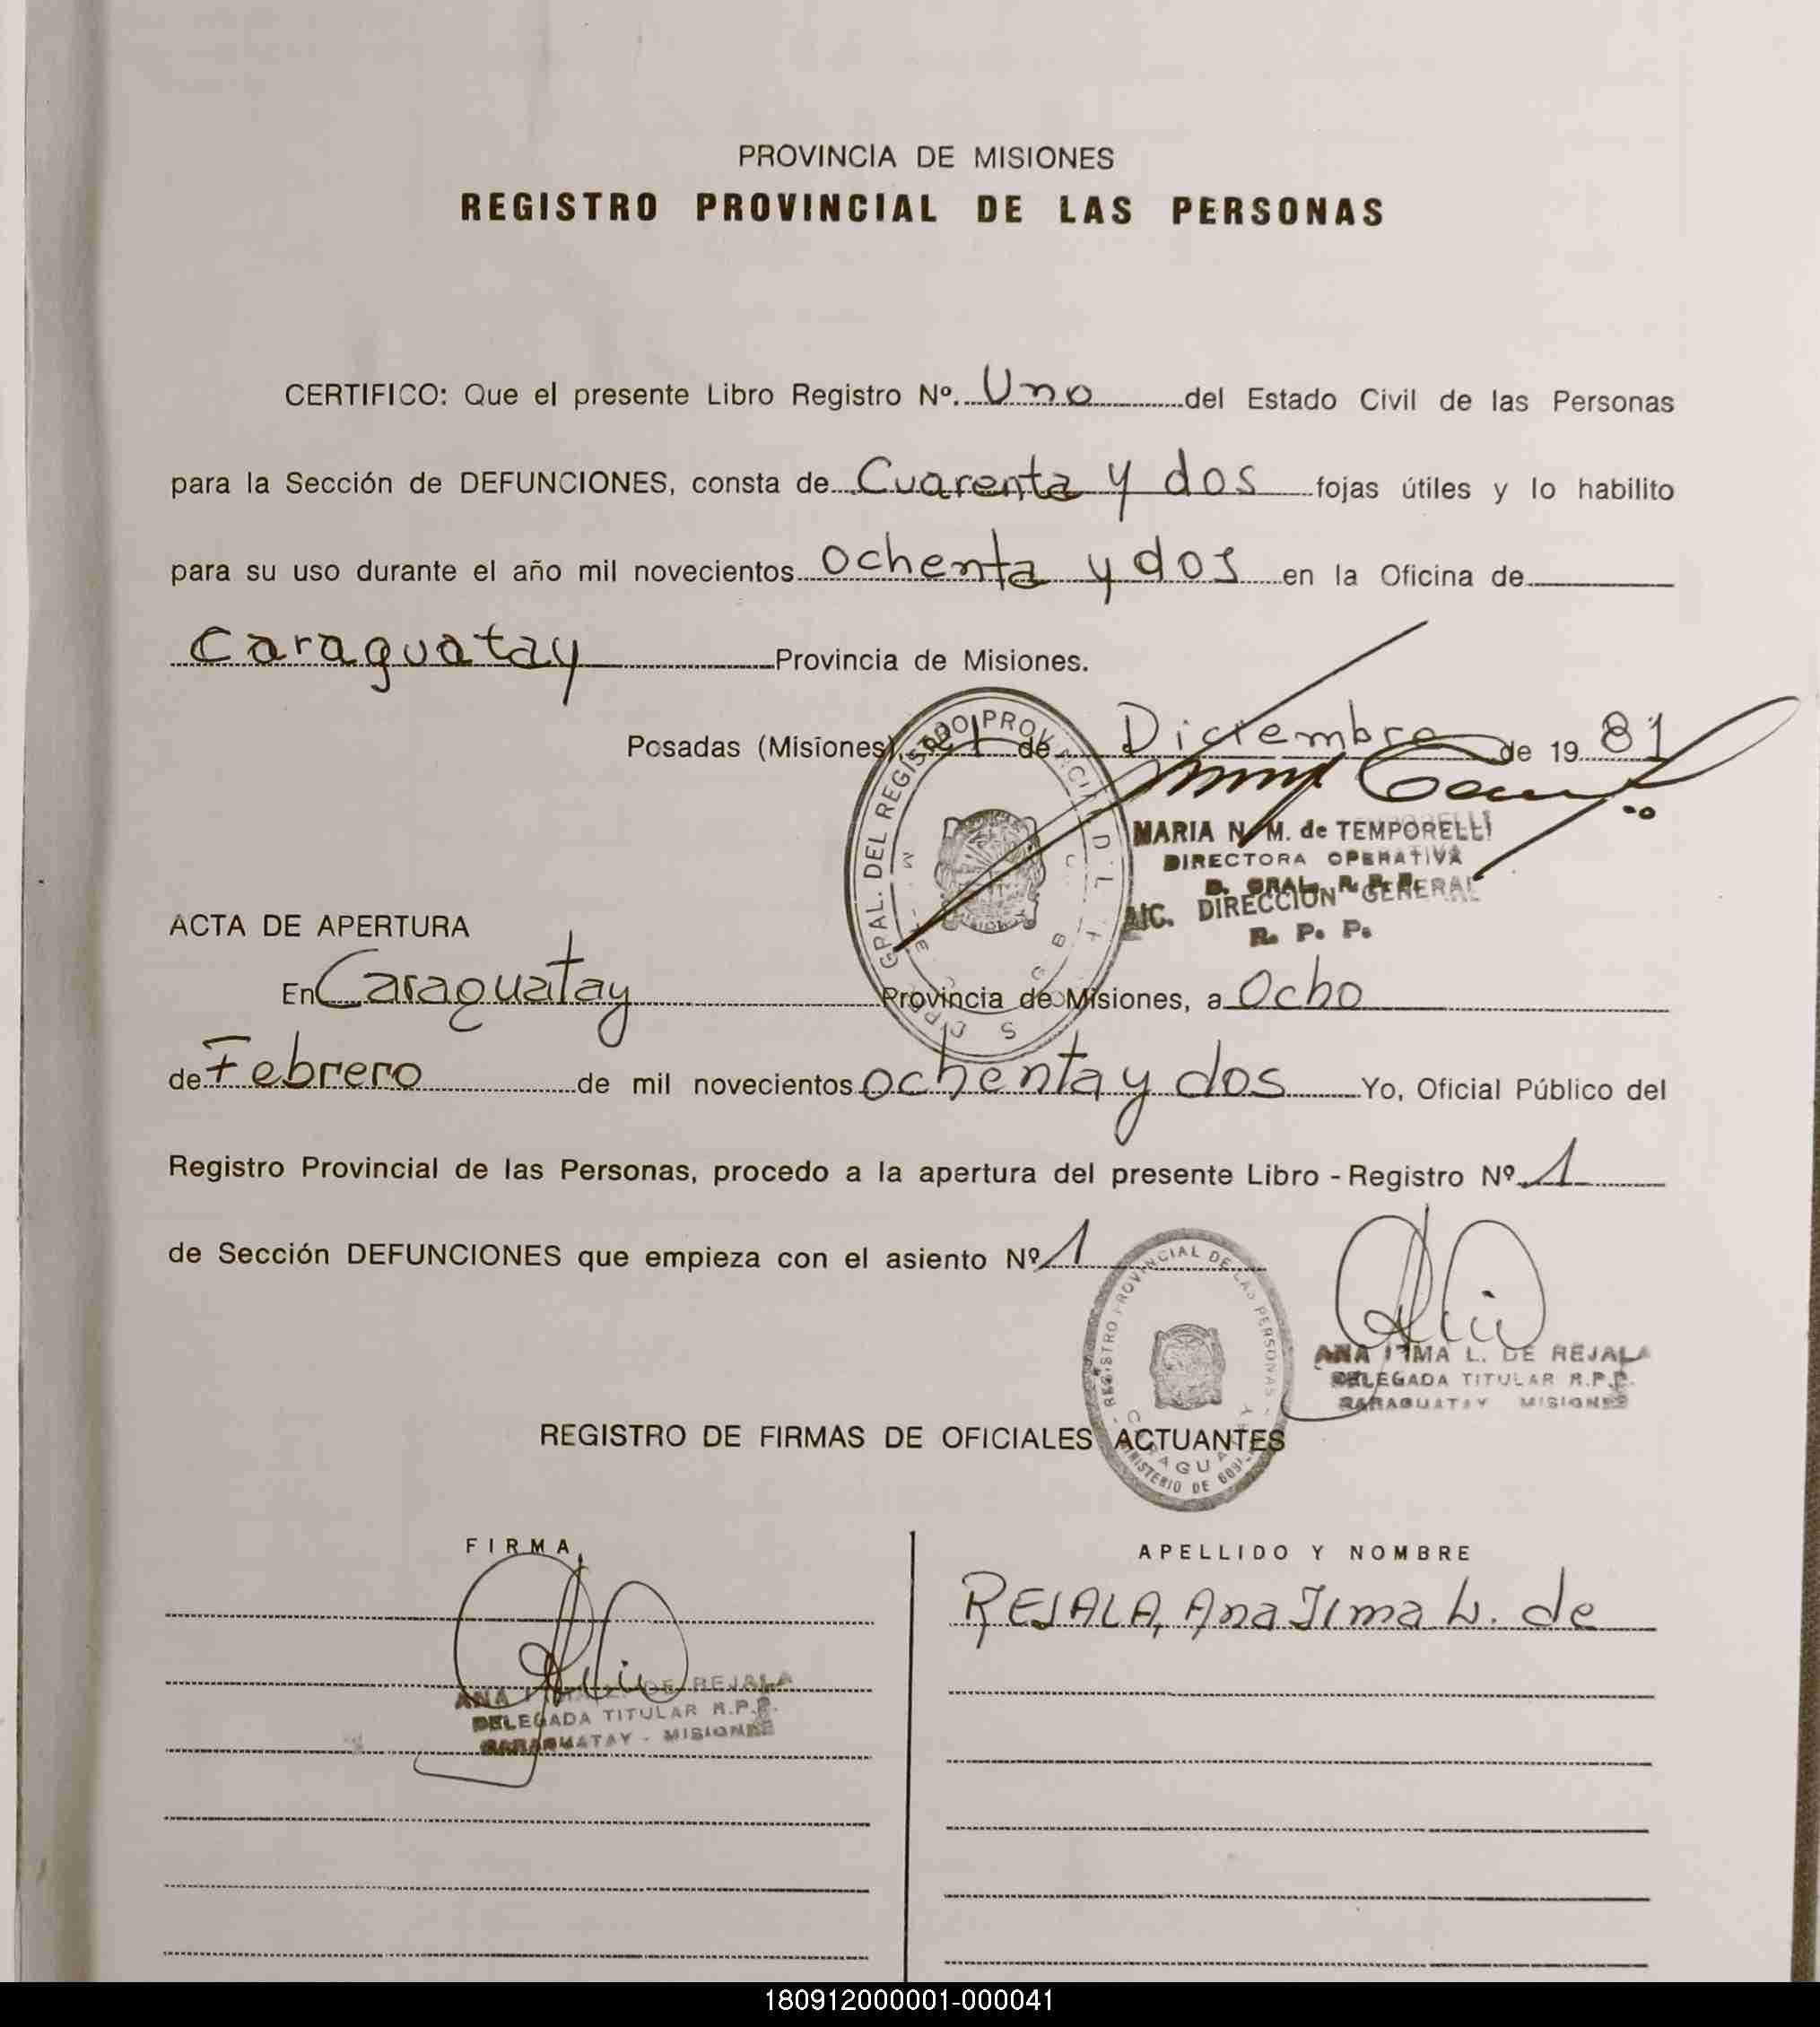 PROVINCIA DE MISIONES
REGISTRO PROVINCIAL DE LAS PERSONAS
CERTIFICO: Que el presente Libro Registro Nº. Uno del Estado Civil de las Personas
para la Sección de DEFUNCIONES, consta de Cuarenta y dos fojas útiles y lo habilito
para su uso durante el año mil novecientos ochenta y dos en la Oficina de
Caraguatay Provincia de Misiones.
Posadas (Misiones), de Diciembre de 19 81
MARIA N. M. de TEMPORELLI
DIRECTORA OPERATIVA
D. GRAL. R. P. P.
A/C. DIRECCION GENERAL
R. P. P.
GPAL. DEL REGISTRO PROVINCIAL
ACTA DE APERTURA
En Caraguatay Provincia de Misiones, a Ocho
de Febrero de mil novecientos ochenta y dos Yo, Oficial Público del
Registro Provincial de las Personas, procedo a la apertura del presente Libro - Registro Nº 1
de Sección DEFUNCIONES que empieza con el asiento Nº 1
REGISTRO PROVINCIAL DE LAS PERSONAS
MINISTERIO DE
ANA IRMA L. DE REJALA
DELEGADA TITULAR R.P.P.
CARAGUATAY MISIONES
REGISTRO DE FIRMAS DE OFICIALES ACTUANTES
FIRMA
APELLIDO Y NOMBRE
REJALA, Ana Irma L. de
ANA DE REJALA
DELEGADA TITULAR R.P.P.
CARAGUATAY - MISIONES
180912000001-000041